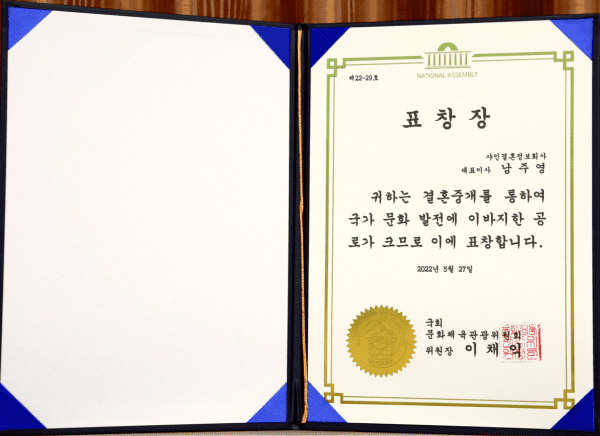 NATIONAL ASSEMBLY
제22-29호
표창장
샤인결혼정보회사
대표이사 남주영
귀하는 결혼중개를 통하여
국가 문화 발전에 이바지한 공
로가 크므로 이에 표창합니다.
2022년 5월 27일
국회
문화체육관광위원회
위원장 이채익